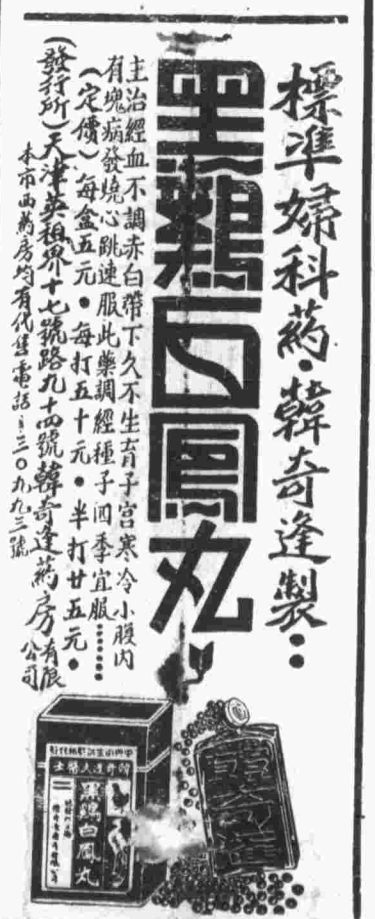 標準婦科药・韓奇逢製
黑鷄白鳳丸
主治經血不調赤白帶下久不生育子宮寒冷小腹内
有塊病發燒心跳連服此藥調經種子四季宜服
(定價)每盒五元・每打五十元・半打廿五元・
(發行所)天津英租界十七號路九十四號韓奇逢药房有限公司
本市西药房均有代售電話:三〇九九三號
韓奇逢大醫士
黑鷄白鳳丸
韓奇逢